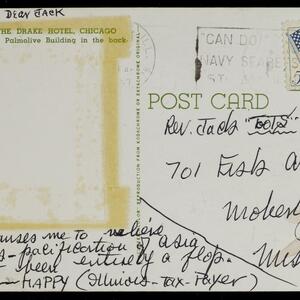 Dear Jack
THE DRAKE HOTEL, CHICAGO
Palmolive Building in the back.
ILL.
"CAN DO"
NAVY SEABE
POST CARD
OR REPRODUCTION FROM KODACHROME OR EKTACHROME ORIGINAL
Rev. Jack
701 Fisk A
Moberl
Miss
auses me to believe
s-pacification of asia
been entirely a flop.
HAPPY (Illinois-Tax-Payer)